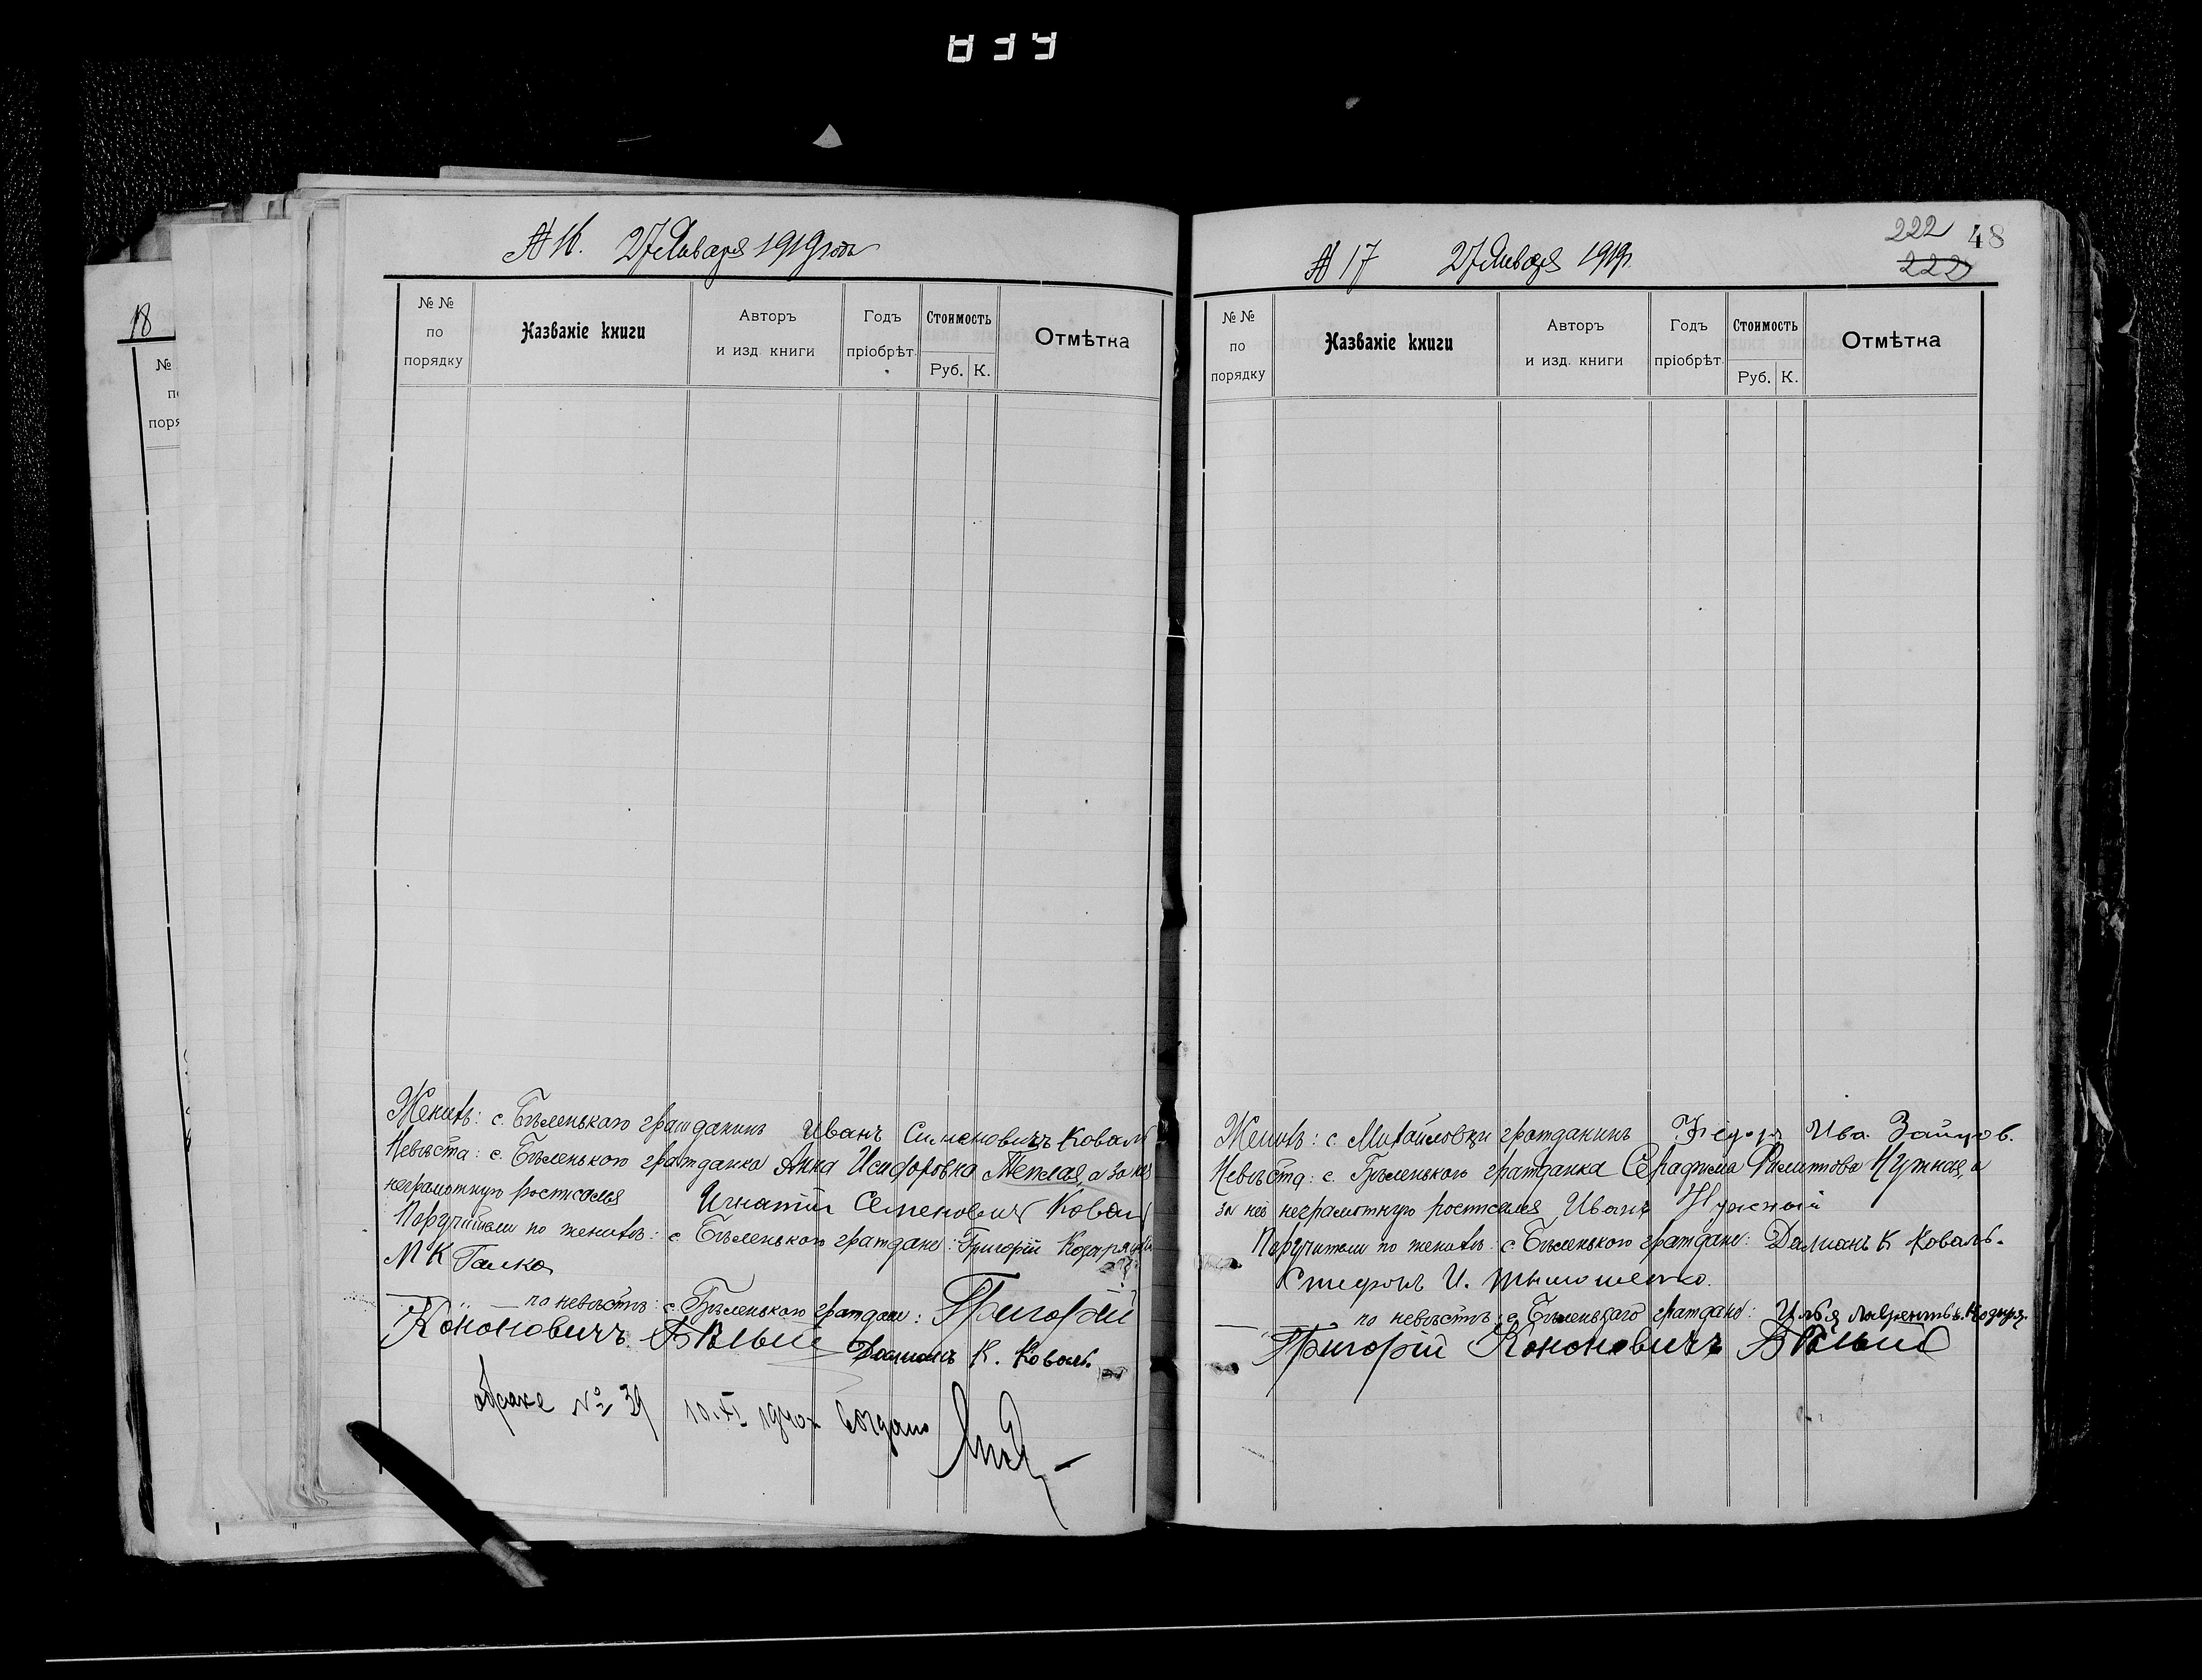 18
№
по
поря
№ 16. 27 Января 1919 года
№ №
по
порядку
Названіе книги
Авторъ
и изд. книги
Годъ
пріобрѣт.
Стоимость
Руб. К.
Отмѣтка
Женихъ: с. Бѣленькаго гражданинъ Иванъ Сименовичъ Коваль
Невѣста: с. Бѣленького гражданка Анна Исидоровна Теплая, а за нея
неграмотную росписался Игнатій Семеновичъ Коваль
Поручители по женихѣ: с. Бѣленького граждане: Григорій
М К Галка
по невѣстѣ: с. Бѣленького граждане: Григорій
Кононовичъ Бѣлый Домианъ К. Коваль.
№ 39 10.XI 1940 г.
222 48
222
№ 17 27 Января 1919 г.
№ №
по
порядку
Названіе книги
Авторъ
и изд. книги
Годъ
пріобрѣт.
Стоимость
Руб. К.
Отмѣтка
Женихъ: с. Михайловки гражданинъ Фёдоръ Ива. Зайцов.
Невѣста: с. Бѣленького гражданка Серафима Филиппова Нужная, а
за неё неграмотную росписался Иванъ Нужный
Поручители по женихѣ: с. Бѣленького граждане: Дамианъ К Коваль.
Стефанъ И. Тимошенко.
по невѣстѣ: с. Бѣленькаго граждане: Илья
Григорій Кононовичъ Бѣлый